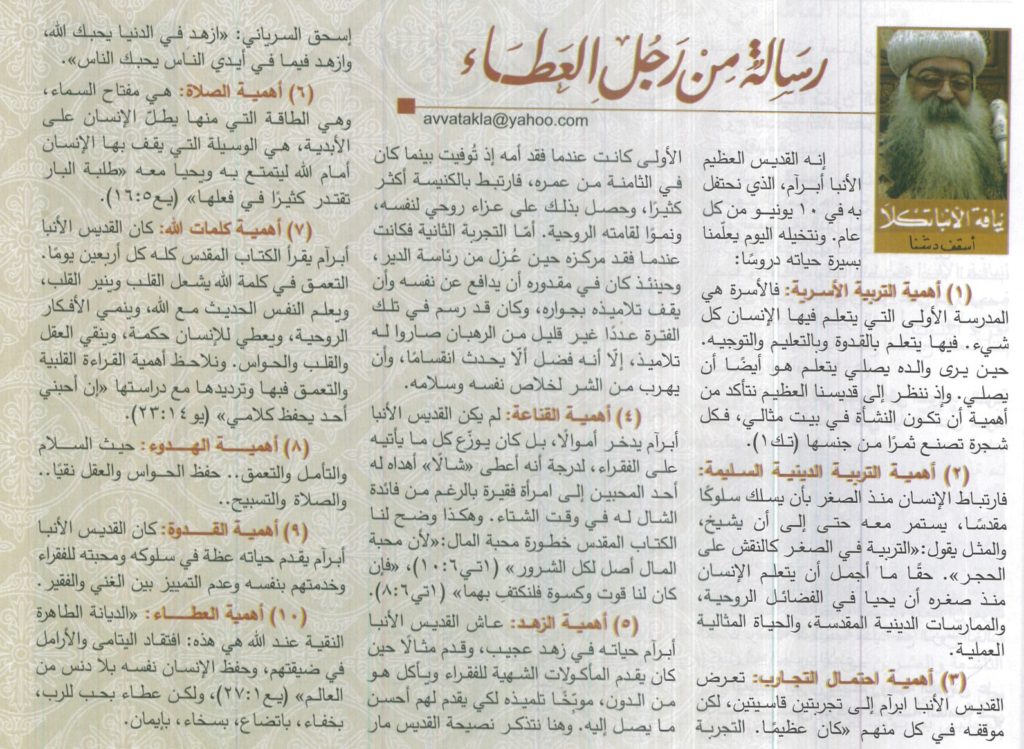 رسالة من رجل العطاء
avvatakla@yahoo.com
نيافة الأنبا تكلا
أسقف دشنا
إنه القديس العظيم
الأنبا أبرآم، الذي نحتفل
به في ١٠ يونيو من كل
عام. ونتخيله اليوم يعلّمنا
بسيرة حياته دروسًا:
(١) أهمية التربية الأسرية: فالأسرة هي
المدرسة الأولى التي يتعلم فيها الإنسان كل
شيء. فيها يتعلم بالقدوة وبالتعليم والتوجيه.
حين يرى والده يصلي يتعلم هو أيضًا أن
يصلي. وإذ ننظر إلى قديسنا العظيم نتأكد من
أهمية أن تكون النشأة في بيت مثالي، فكل
شجرة تصنع ثمرًا من جنسها (تك١).
(٢) أهمية التربية الدينية السليمة:
فارتباط الإنسان منذ الصغر بأن يسلك سلوكًا
مقدسًا، يستمر معه حتى إلى أن يشيخ،
والمثل يقول:«التربية في الصغر كالنقش على
الحجر». حقًا ما أجمل أن يتعلم الإنسان
منذ صغره أن يحيا في الفضائل الروحية،
والممارسات الدينية المقدسة، والحياة المثالية
العملية.
(٣) أهمية احتمال التجارب: تعرض
القديس الأنبا ابرآم إلى تجربتين قاسيتين، لكن
موقفه في كل منهم «كان عظيمًا. التجربة
الأولى كانت عندما فقد أمه إذ تُوفيت بينما كان
في الثامنة من عمره، فارتبط بالكنيسة أكثر
كثيرًا، وحصل بذلك على عزاء روحي لنفسه،
ونموًا لقامته الروحية. أمّا التجربة الثانية فكانت
عندما فقد مركزه حين عُزل من رئاسة الدير،
وحينئذ كان في مقدوره أن يدافع عن نفسه وأن
يقف تلاميذه بجواره، وكان قد رسم في تلك
الفترة عددًا غير قليل من الرهبان صاروا له
تلاميذ، إلّا أنه فضل ألّا يحدث انقسامًا، وأن
يهرب من الشر لخلاص نفسه وسلامه.
(٤) أهمية القناعة: لم يكن القديس الأنبا
أبرآم يدخر أموالًا، بل كان يوزّع كل ما يأتيه
على الفقراء، لدرجة أنه أعطى «شالًا» أهداه له
أحد المحبين إلى امرأة فقيرة بالرغم من فائدة
الشال له في وقت الشتاء. وهكذا وضح لنا
الكتاب المقدس خطورة محبة المال:«لأن محبة
المال أصل لكل الشرور» (١تي٦:١٠)، «فإن
كان لنا قوت وكسوة فلنكتف بهما» (١تي٦:٨).
(٥) أهمية الزهد: عاش القديس الأنبا
أبرآم حياته في زهد عجيب، وقدم مثالًا حين
كان يقدم المأكولات الشهية للفقراء ويأكل هو
من الدون، موبّخًا تلميذه لكي يقدم لهم أحسن
ما يصل إليه. وهنا نتذكر نصيحة القديس مار
إسحق السرياني: «ازهد في الدنيا يحبك الله،
وازهد فيما في أيدي الناس يحبك الناس».
(٦) أهمية الصلاة: هي مفتاح السماء،
وهي الطاقة التي منها يطلّ الإنسان على
الأبدية، هي الوسيلة التي يقف بها الإنسان
أمام الله ليتمتع به ويحيا معه «طلبة البار
تقتدر كثيرًا في فعلها» (يع٥:١٦).
(٧) أهمية كلمات الله: كان القديس الأنبا
أبرآم يقرأ الكتاب المقدس كله كل أربعين يومًا.
التعمق في كلمة الله يشعل القلب وينير القلب،
ويعلم النفس الحديث مع الله، وينمي الأفكار
الروحية، ويعطي للإنسان حكمة، وينقي العقل
والقلب والحواس. ونلاحظ أهمية القراءة القلبية
والتعمق فيها وترديدها مع دراستها «إن أحبني
أحد يحفظ كلامي» (يو١٤:٢٣).
(٨) أهمية الهدوء: حيث السلام
والتأمل والتعمق.. حفظ الحواس والعقل نقيًا..
والصلاة والتسبيح..
(٩) أهمية القدوة: كان القديس الأنبا
أبرآم يقدم حياته عظة في سلوكه ومحبته للفقراء
وخدمتهم بنفسه وعدم التمييز بين الغني والفقير.
(١٠) أهمية العطاء: «الديانة الطاهرة
النقية عند الله هي هذه: افتقاد اليتامى والأرامل
في ضيقتهم، وحفظ الإنسان نفسه بلا دنس من
العالم» (يع١:٢٧)، ولكن عطاء بحب للرب،
بخفاء، باتضاع، بسخاء، بإيمان.